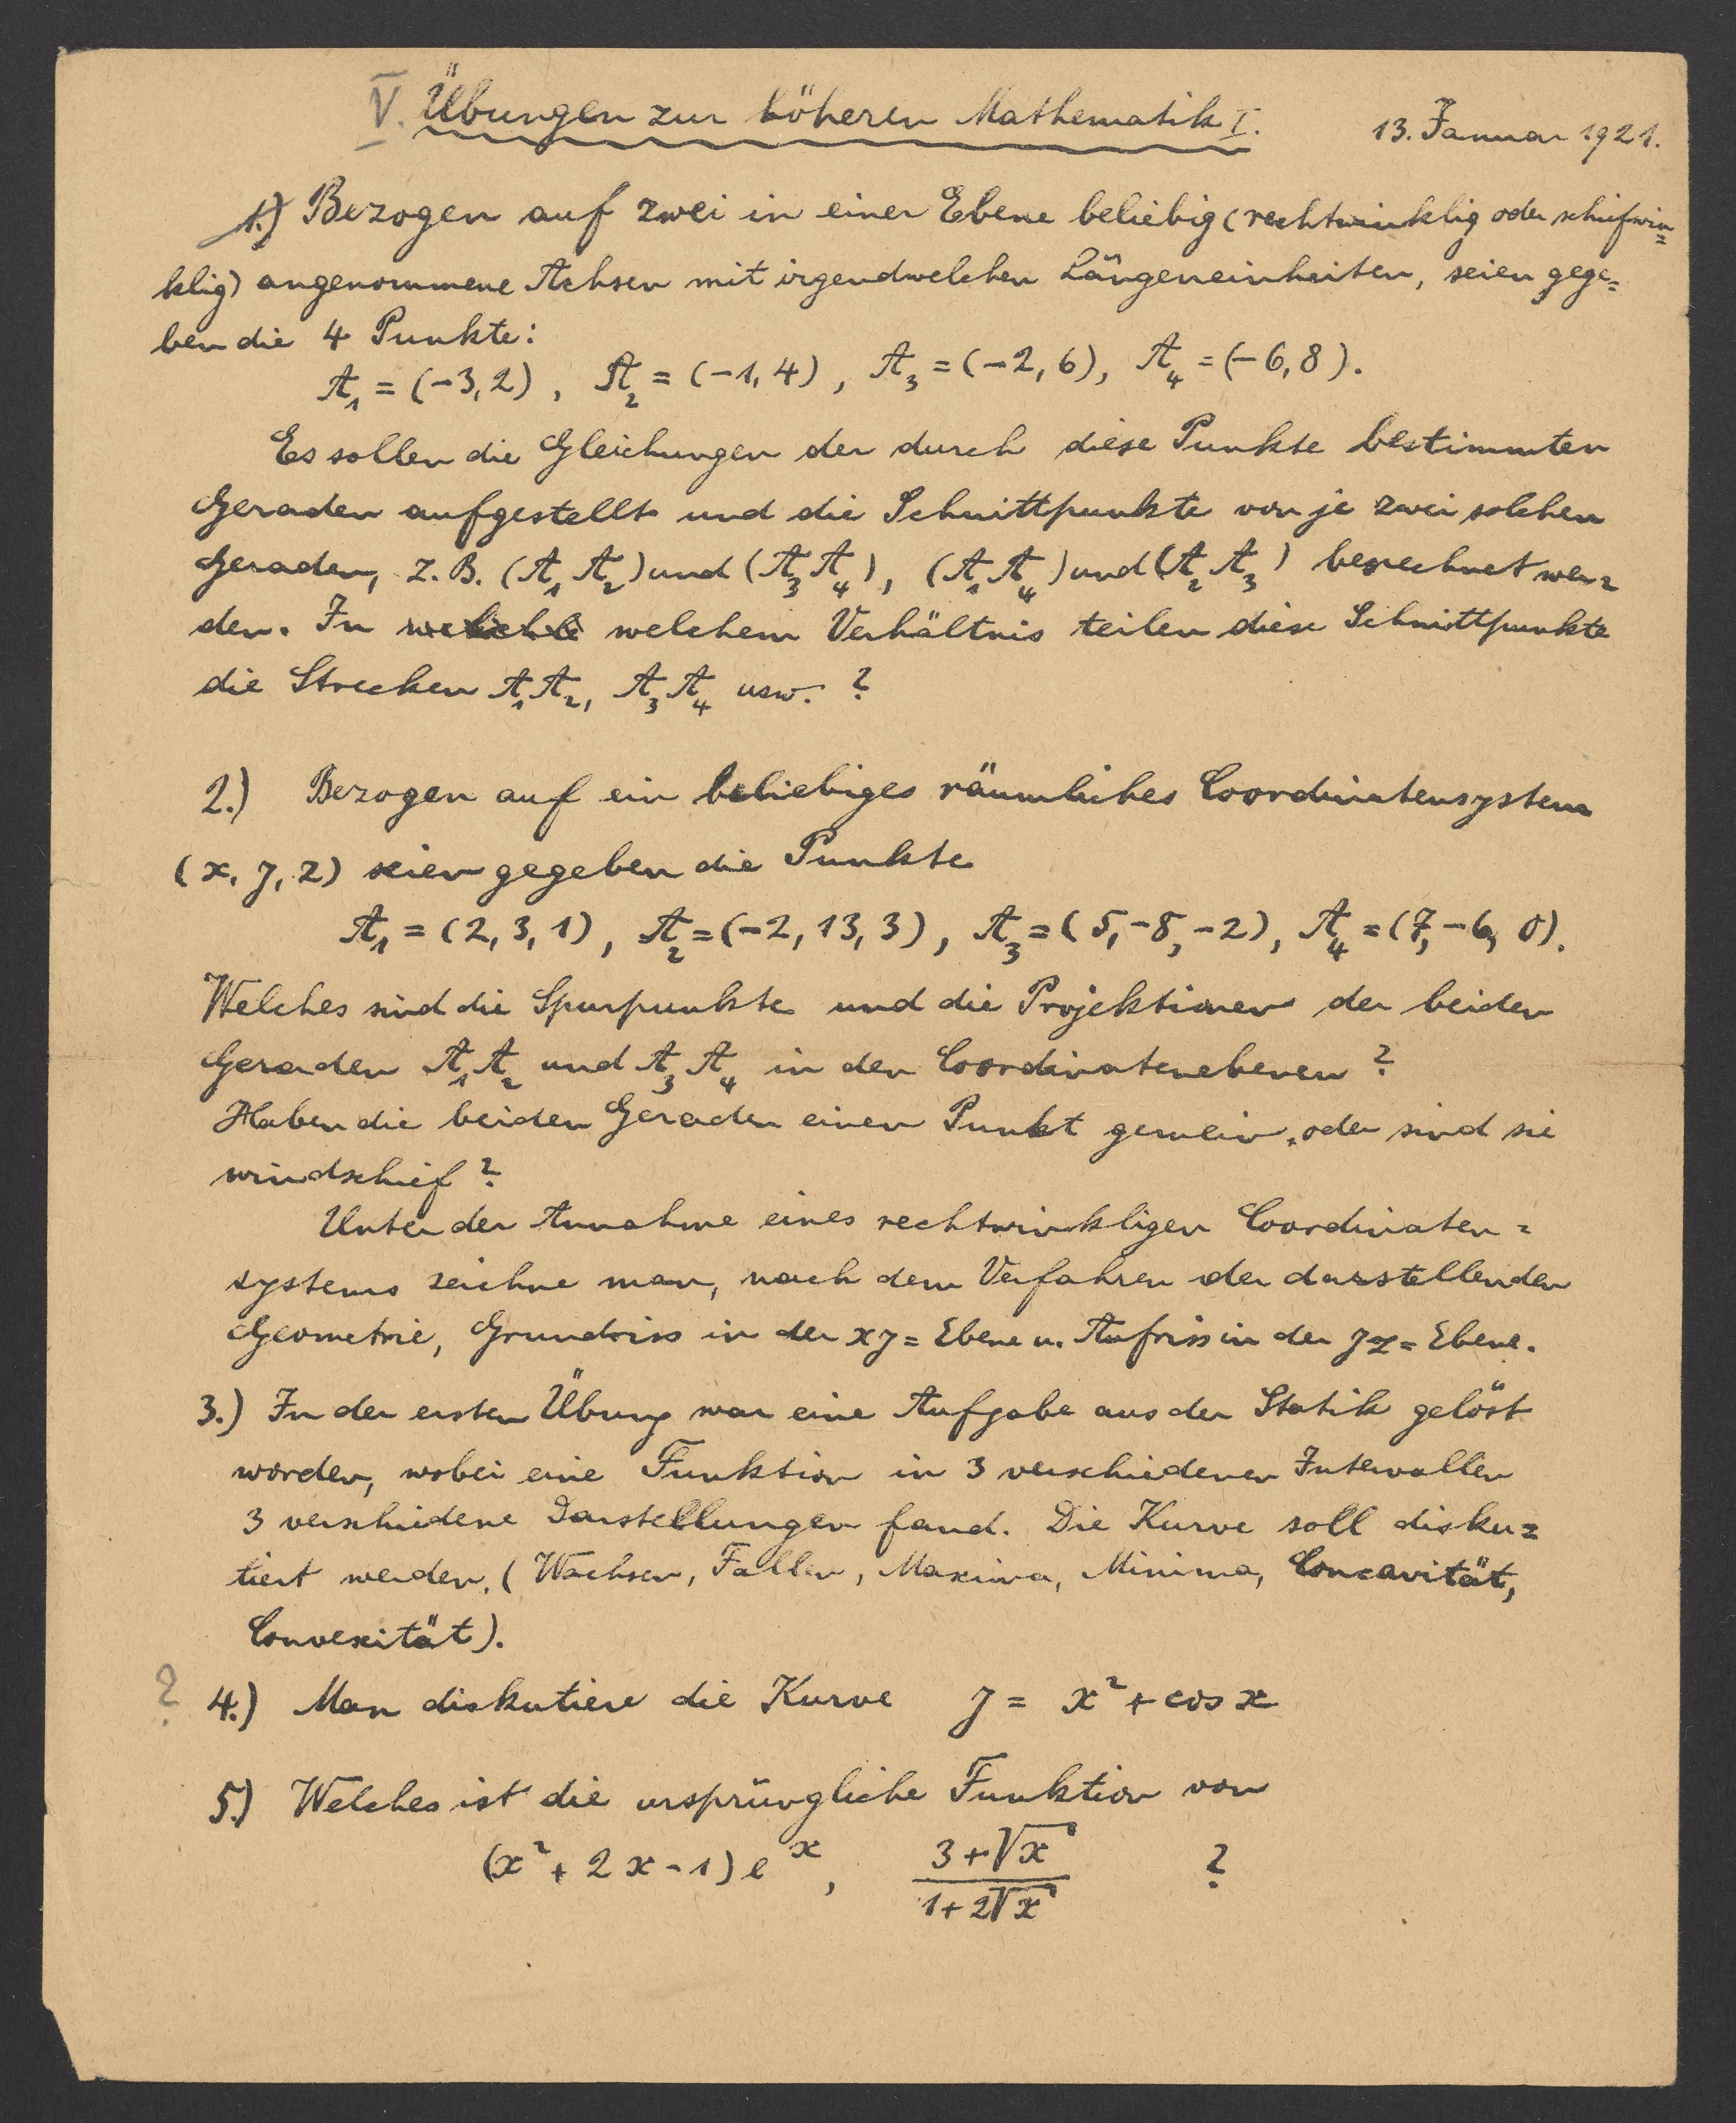 V. Übungen zur höheren Mathematik I. 13. Januar 1921.
1.) Bezogen auf zwei in einer Ebene beliebig (rechtwinklig oder schiefwin=
klig) angenommene Achsen mit irgendwelchen Längeneinheiten, seien gege=
ben die 4 Punkte:
A₁ = (-3,2), A₂ = (-1,4), A₃ = (-2,6), A₄ = (-6,8).
Es sollen die Gleichungen der durch diese Punkte bestimmten
Geraden aufgestellt und die Schnittpunkte von je zwei solchen
Geraden, z. B. (A₁ A₂) und (A₃ A₄), (A₁ A₄) und (A₂ A₃) berechnet wer=
den. In welchem Verhältnis teilen diese Schnittpunkte
die Strecken A₁A₂, A₃A₄ usw. ?
2.) Bezogen auf ein beliebiges räumliches Coordinatensystem
(x, y, z) seien gegeben die Punkte
A₁ = (2, 3, 1), A₂ = (-2, 13, 3), A₃ = (5, -8, -2), A₄ = (7, -6, 0).
Welches sind die Spurpunkte und die Projektionen der beiden
Geraden A₁A₂ und A₃A₄ in den Coordinatenebenen ?
Haben die beiden Geraden einen Punkt gemein, oder sind sie
windschief ?
Unter der Annahme eines rechtwinkligen Coordinaten=
systems zeichne man, nach dem Verfahren der darstellenden
Geometrie, Grundriss in der xy=Ebene u. Aufriss in der yz=Ebene.
3.) In der ersten Übung war eine Aufgabe aus der Statik gelöst
worden, wobei eine Funktion in 3 verschiedenen Intervallen
3 verschiedene Darstellungen fand. Die Kurve soll disku=
tiert werden, (Wachsen, Fallen, Maxima, Minima, Concavität,
Convexität).
? 4.) Man diskutiere die Kurve y = x² + cos x
5.) Welches ist die ursprüngliche Funktion von
(x² + 2x - 1) eˣ, (3 + √x)/(1 + 2√x) ?